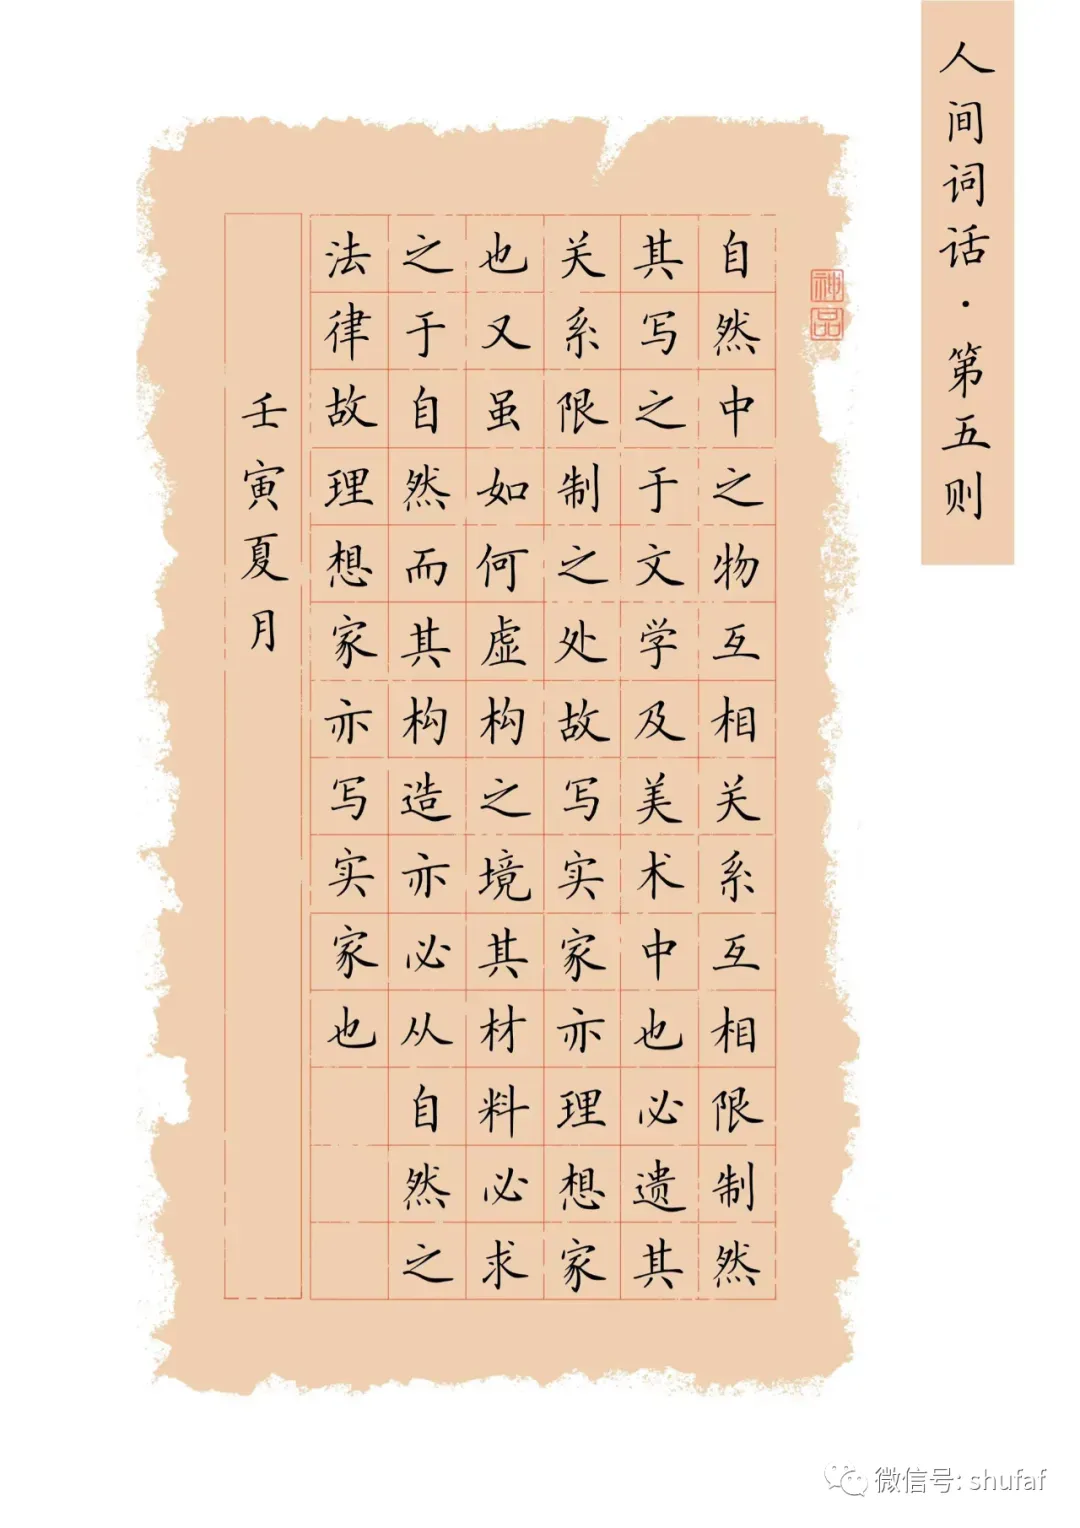 人间词话·第五则
神品
自然中之物互相关系互相限制然
其写之于文学及美术中也必遗其
关系限制之处故写实家亦理想家
也又虽如何虚构之境其材料必求
之于自然而其构造亦必从自然之
法律故理想家亦写实家也
壬寅夏月
微信号: shufaf